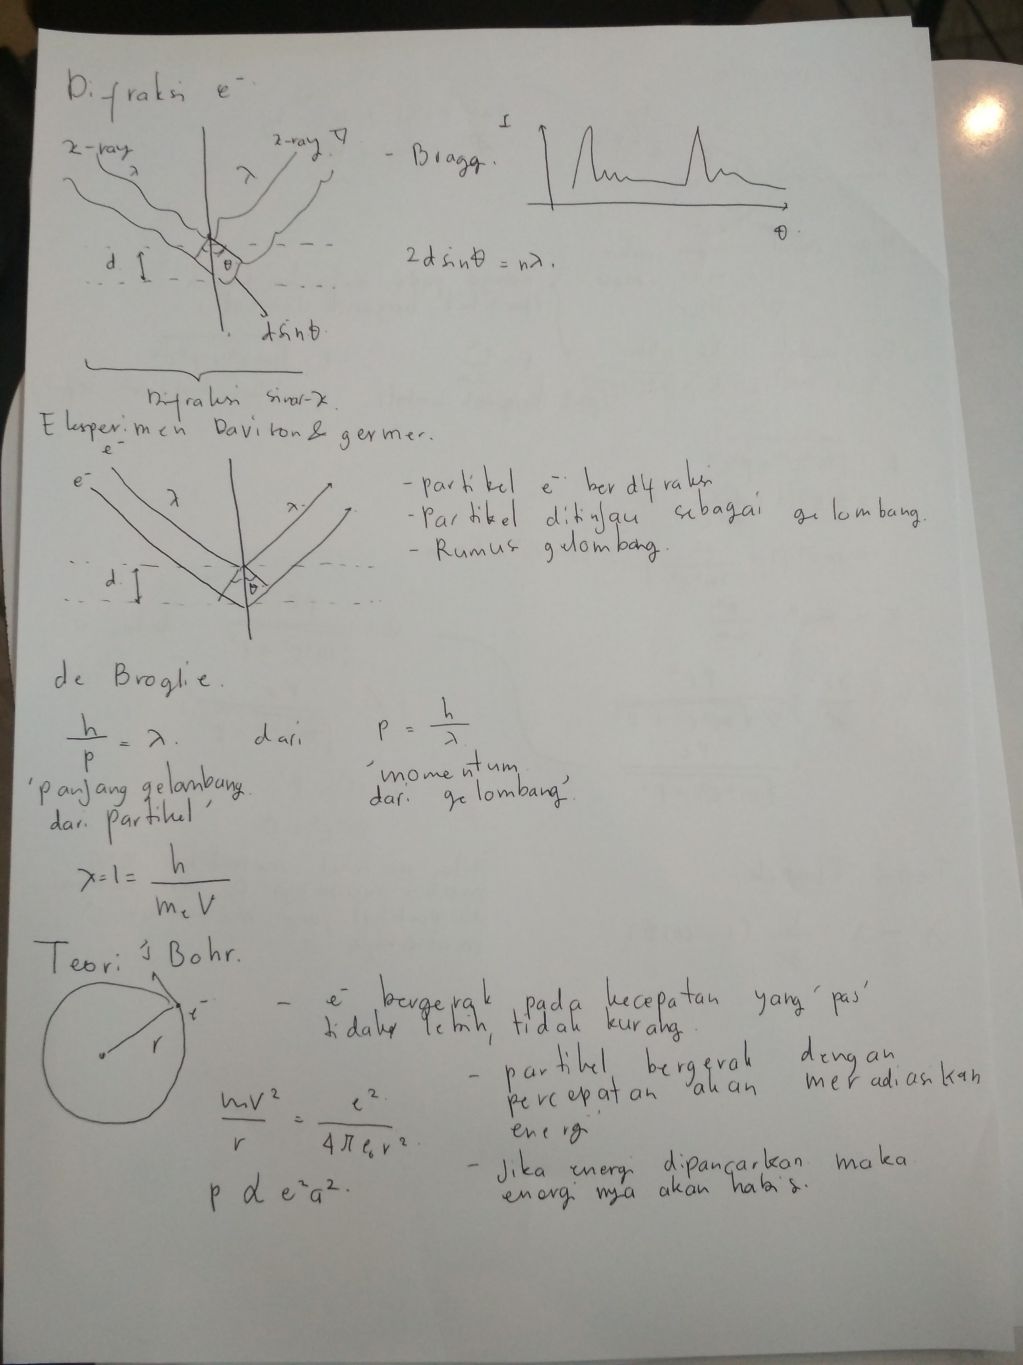 Difraksi e⁻
x-ray
x-ray
λ
λ
- Bragg.
I
θ
d
θ
2d sinθ = nλ.
d sinθ
Difraksi sinar-x.
Eksperimen Davison & germer.
e⁻
e⁻
λ
λ
- partikel e⁻ berdifraksi
- Partikel ditinjau sebagai gelombang.
- Rumus gelombang.
d
θ
de Broglie.
h/p = λ. dari p = h/λ
'panjang gelombang
dari partikel'
'momentum
dari gelombang'
λ = 1 = h/(mₑ V)
Teori Bohr.
e⁻
r
- e⁻ bergerak pada kecepatan yang 'pas'
tidak lebih, tidak kurang.
- partikel bergerak dengan
percepatan akan meradiasikan
energi
mv²/r = e²/(4πε₀r²).
- Jika energi dipancarkan maka
energi nya akan habis.
p ∝ e²a².